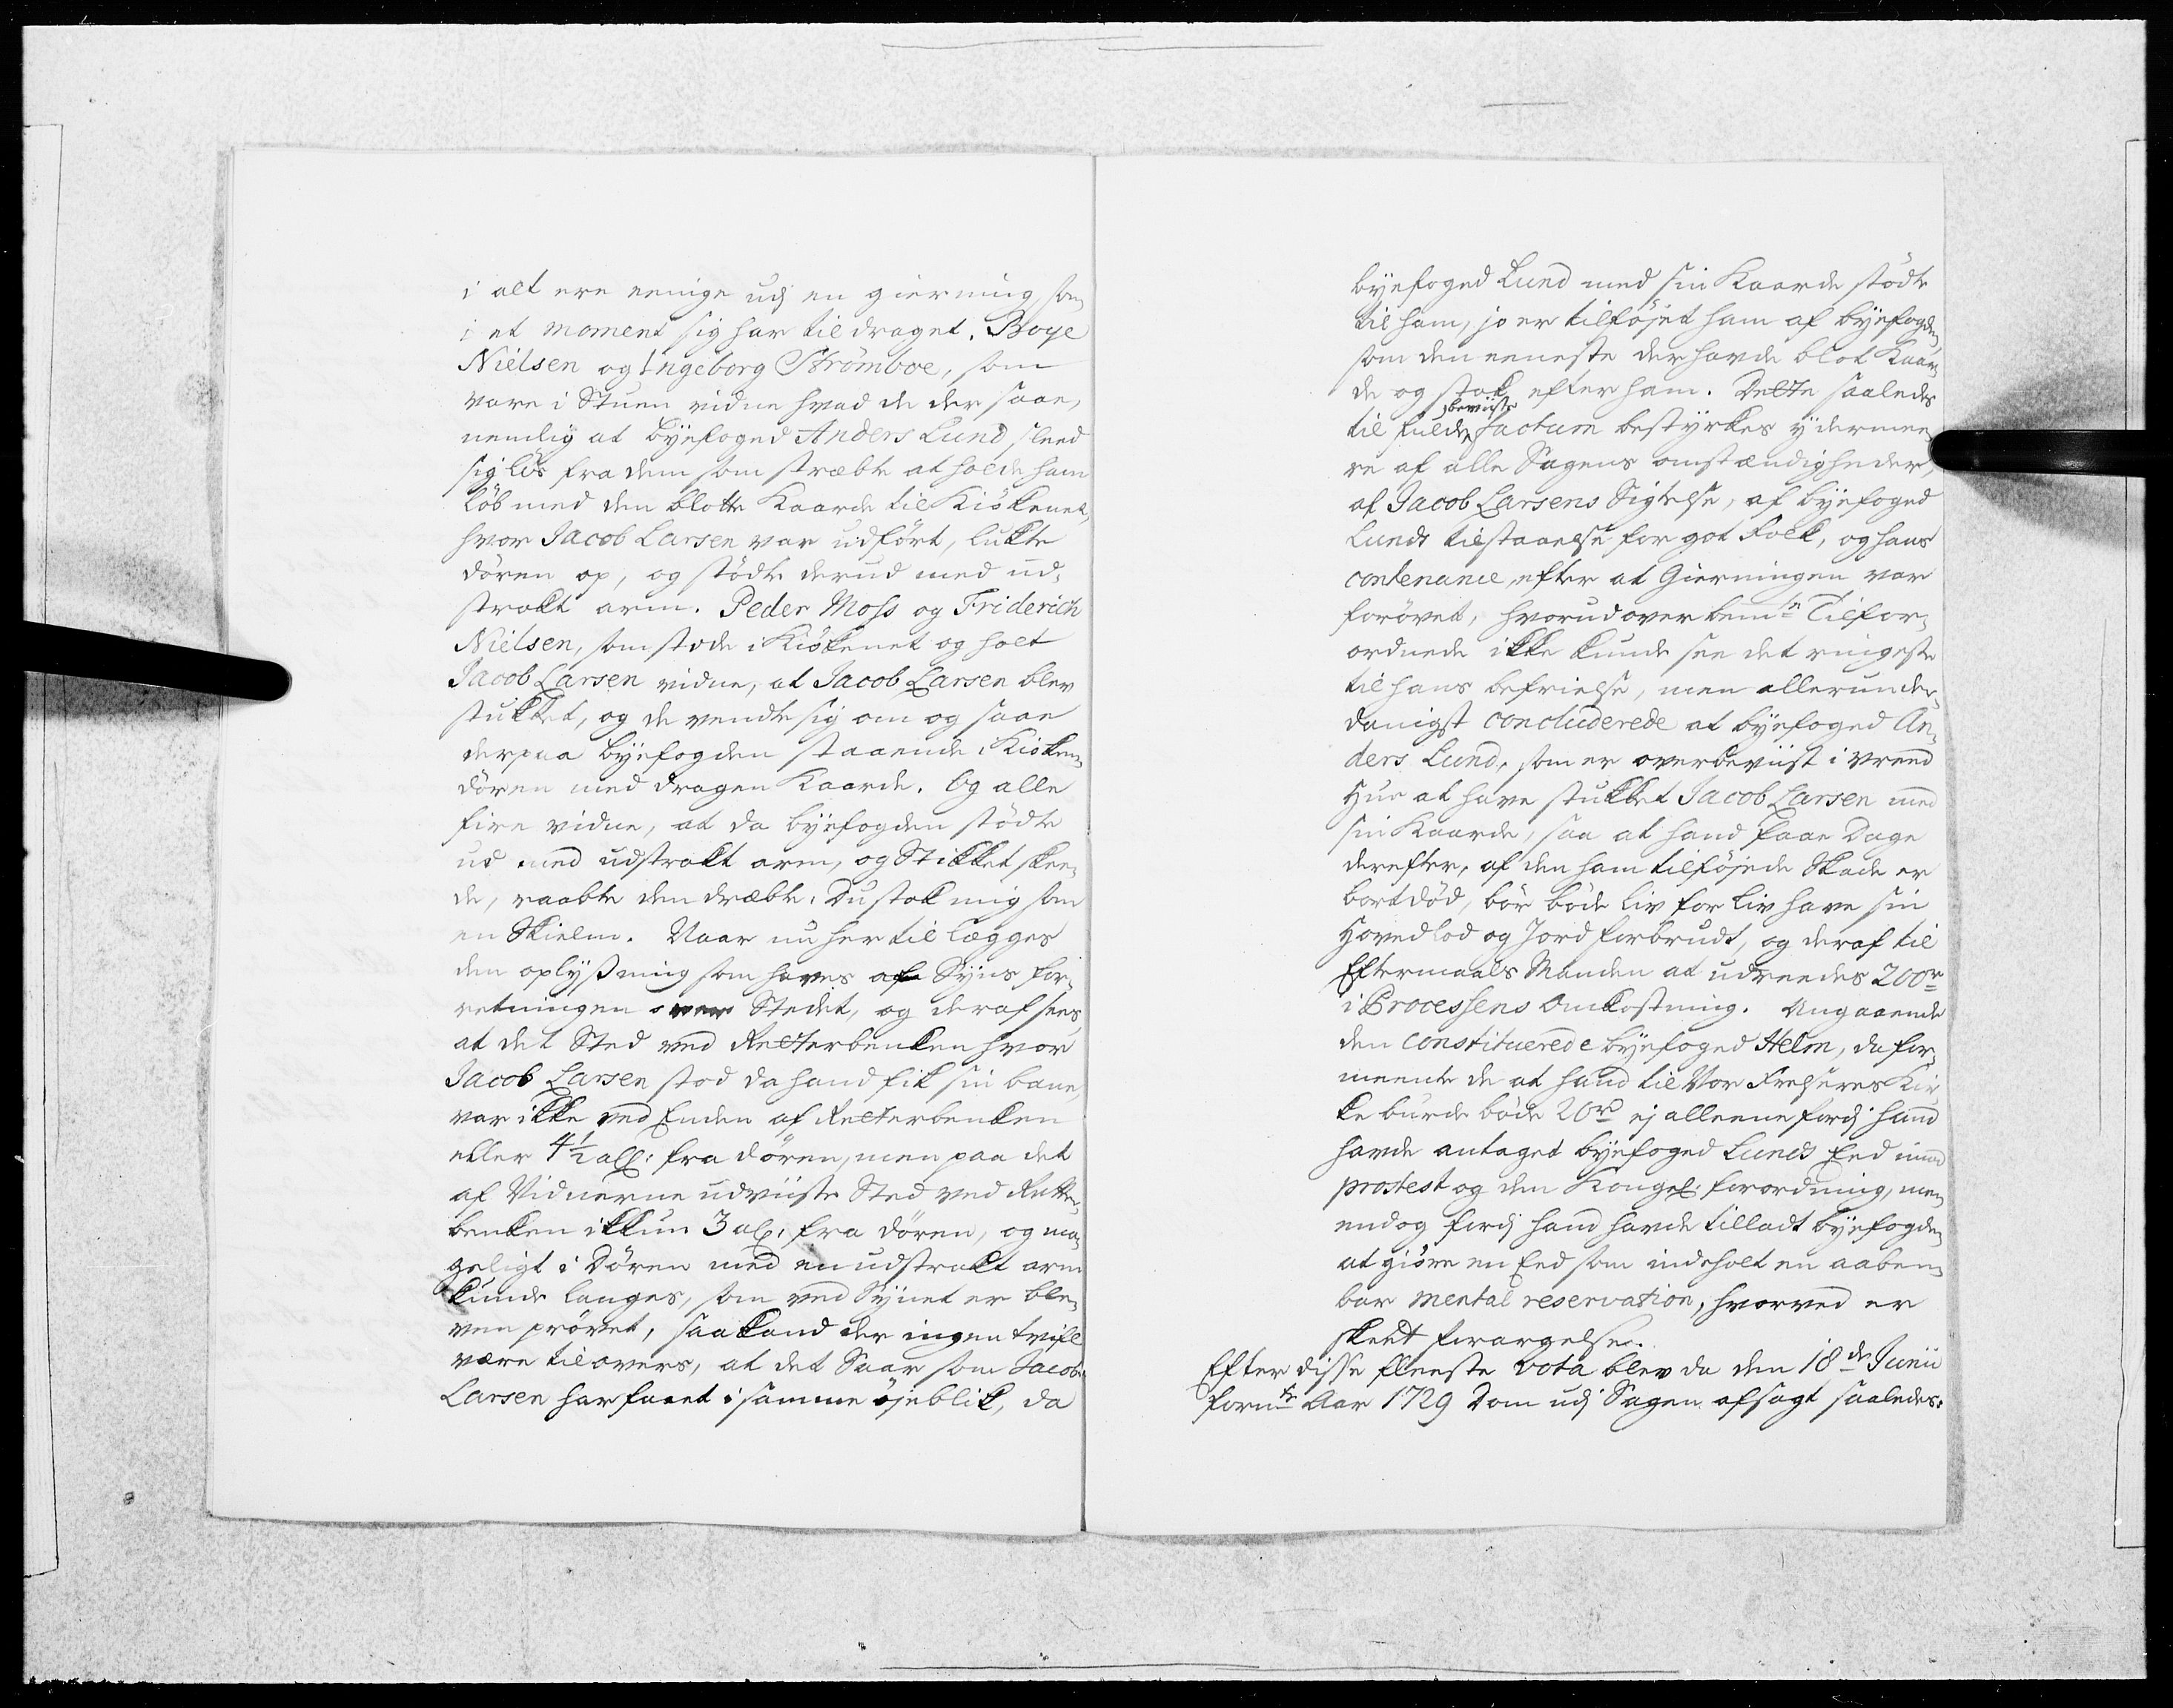 i alt ere eenige udj en gierning som
i et moment sig har tildraget. Boye
Nielsen og Ingeborg Strömboe, som
vare i Stuen vidne hvad de der saae,
nemlig at byefoged Anders Lund sleed
sig lös fra dem som stræbte at holde ham
löb med den blotte Kaarde til Kiökenet,
hvor Jacob Larsen var udfört, lukte
dören op, og stödte derud med ud-
strakt arm. Peder Moss og Friderich
Nielsen, som stode i Kiökenet og holt
Jacob Larsen vidne, at Jacob Larsen blev
stukket, og de vendte sig om og saae
derpaa byefogden staaende i Kiöken-
dören med dragen Kaarde. Og alle
fire vidne, at da byefogden stödte
ud med udstrakt arm, og Stikket skee-
de, raabte den dræbte: Du stak mig som
en Skielm. Naar nu hertil lægges
den oplysning som haves af Syns for-
retningen over Stedet, og deraf sees
at det Sted ved Retterbenken hvor
Jacob Larsen stod da hand fik sin bane,
var ikke ved Enden af Retterbenken
eller 4 1/2 all: fra dören, men paa det
af Vidnerne udviiste Sted ved Retter-
benken ikkun 3 al: fra dören, og ma-
geligt i Dören med en udstrakt arm
kunde langes, som ved Synet er ble-
ven prövet, saa kand der ingen tvifl
være tilovers, at det Saar som Jacob
Larsen har faaet i samme öjeblik, da
byefoged Lund med sin Kaarde stödte
til ham, jo er tilföjet ham af byefogden,
som den eeneste der havde blot Kaar-
de og stak efter ham. Dette saaledes
til fulde beviiste factum bestyrkes ydermee-
re af alle Sagens omstændigheder,
af Jacob Larsens Sigtelse, af byefoged
Lunds tilstaaelse for got Folk, og hans
contenance, efter at Gierningen var
forövet, hvorudover bemte Tilfor-
ordnede ikke kunde see det ringeste
til hans befrielse, men allerunder-
danigst concluderede at byefoged An-
ders Lund, som er overbeviist i vreed
Hue at have stukket Jacob Larsen med
sin Kaarde, saa at hand faae Dage
derefter, af den ham tilföjede Skade er
bortdöd, bör böde liv for liv have sin
Hovedlod og Jord forbrudt, og deraf til
Eftermaals Manden at udreedes 200 rd
i Processens Omkostning. Angaaende
den constituerede byefoged Helm, da for-
meente de at hand til Vor Frelseres Kir-
ke burde böde 20 rd ej alleene fordj hand
havde antaget byefoged Lunds Eed imod
protest og den Kongel: forordning, men
endog fordj hand havde tilladt byefogden
at giöre en Eed som indeholt en aaben-
bar mental reservation, hvorved er
skeedt forargelse.
Efter disse fleeste vota blev da den 18de Junii
fornte Aar 1729 Dom udj Sagen afsagt saaledes.